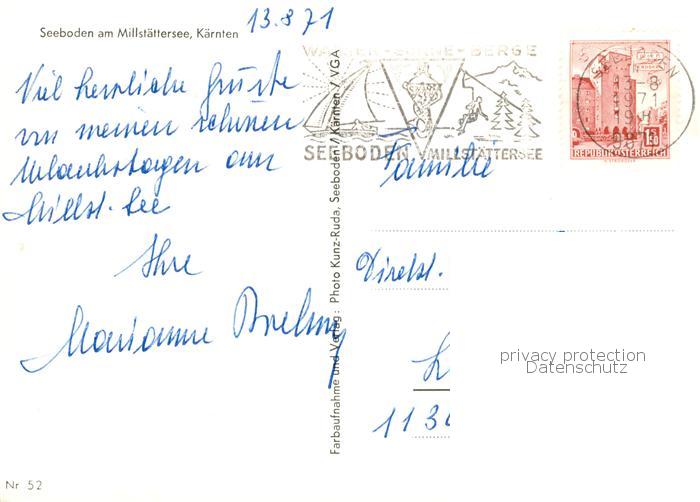 13.8.71
Seeboden am Millstättersee, Kärnten
Viel herrliche Grüsse
von meinen schönen
Urlaubstagen am
Millst. See
Ihre
Marianne
Nr 52
Farbaufnahme und Verlag: Photo Kunz-Ruda, Seeboden / Kärnten / VGA
WASSER - SONNE - BERGE
SEEBODEN MILLSTÄTTERSEE
13-8
1971
REPUBLIK ÖSTERREICH
1.50
Familie
Direkt.
113
privacy protection
Datenschutz